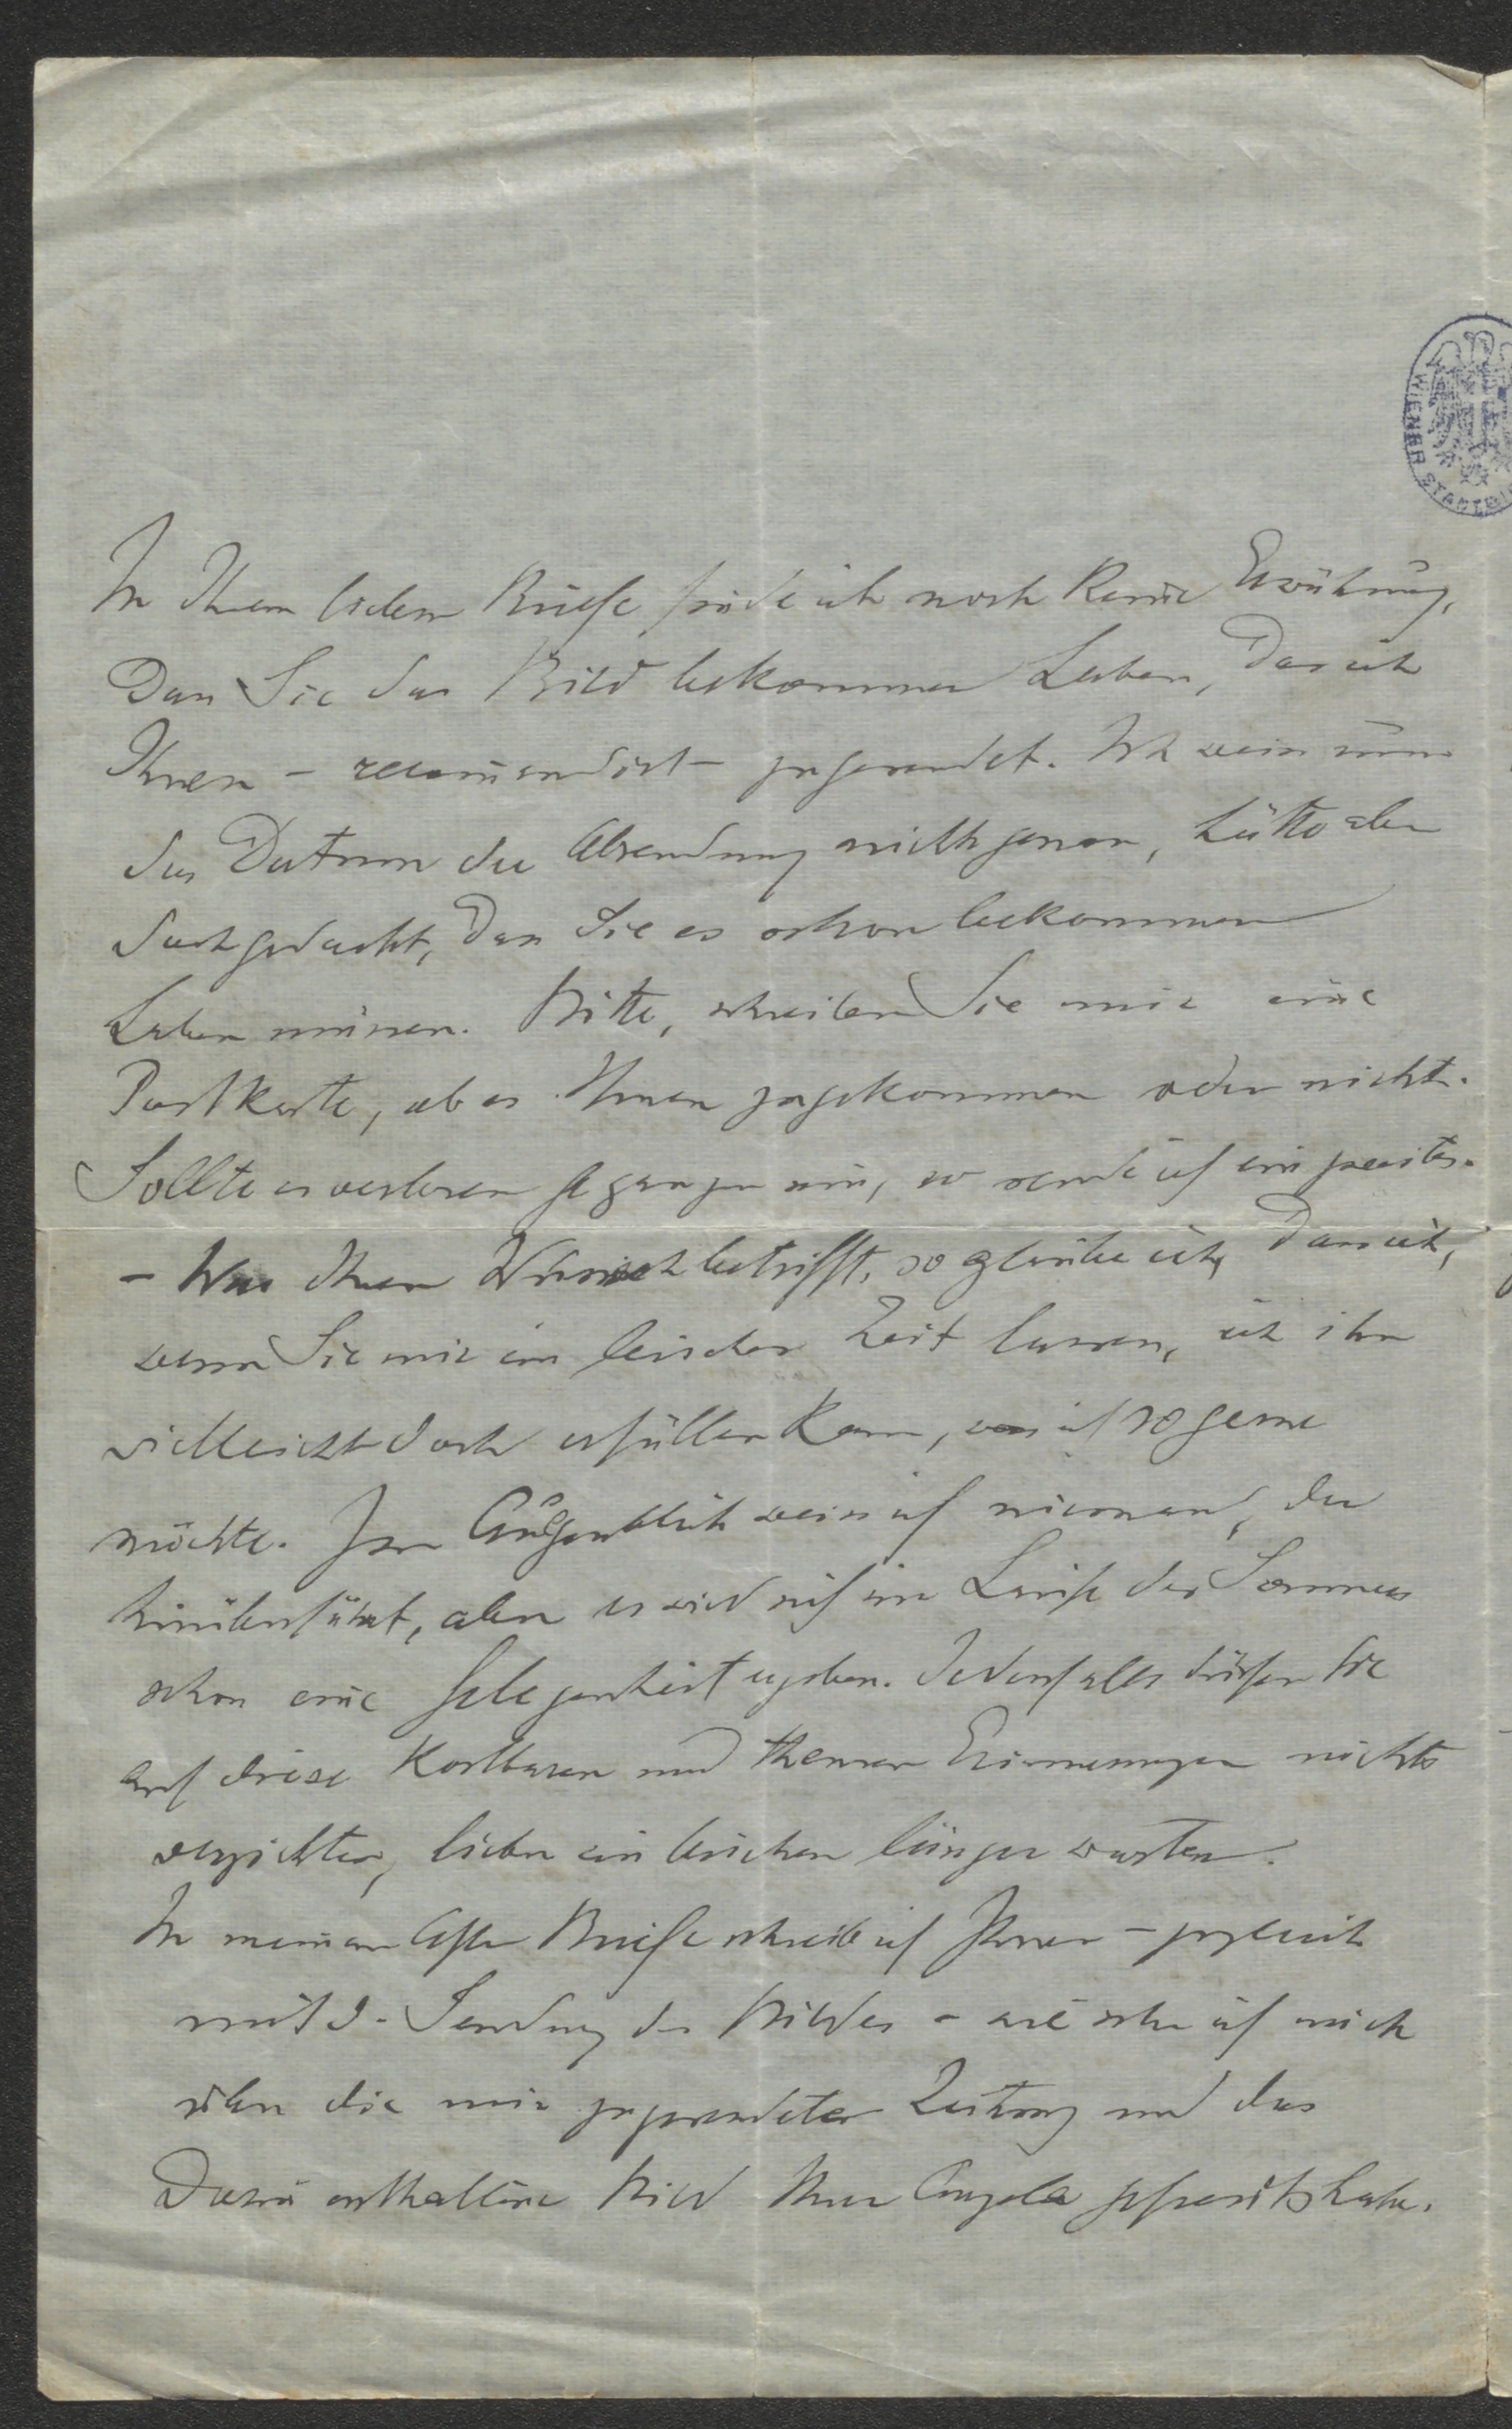 In Ihrem lieben Briefe finde ich noch keine Erwähnung,
Dass Sie das Bild bekommen haben, Das ich
Ihnen – recomandirt – zugesendet. Ich weiss nun
das Datum der Absendung nicht genau, hätte aber
doch gedacht, dass Sie es schon bekommen
haben müssen. Bitte, schreiben Sie mir eine
Postkarte, ob es Ihnen zugekommen oder nicht.
Sollte es verloren gegangen sein, so sende ich ein zweites.
– Was Ihren Wunsch betrifft, so glaube ich, Dass ich,
wenn Sie mir ein bischen Zeit lassen, ich ihn
vielleicht doch erfüllen kann, was ich so gerne
möchte. Im Augenblick weiss ich niemand, der
hinüberfährt, aber es wird sich im Laufe des Sommers
schon eine Gelegenheit ergeben. Jedenfalls dürfen Sie
auf diese kostbaren und theuren Erinnerungen nicht
verzichten, lieber ein bischen länger warten.
In meinem Briefe schrieb ich Ihnen – zugleich
mit d. Sendung des Bildes – wie sehr ich mich
über die mir zugesendete Zeitung und das
Darin enthaltene Bild Ihrer Angela gefreut habe.
WIENER STADTBI